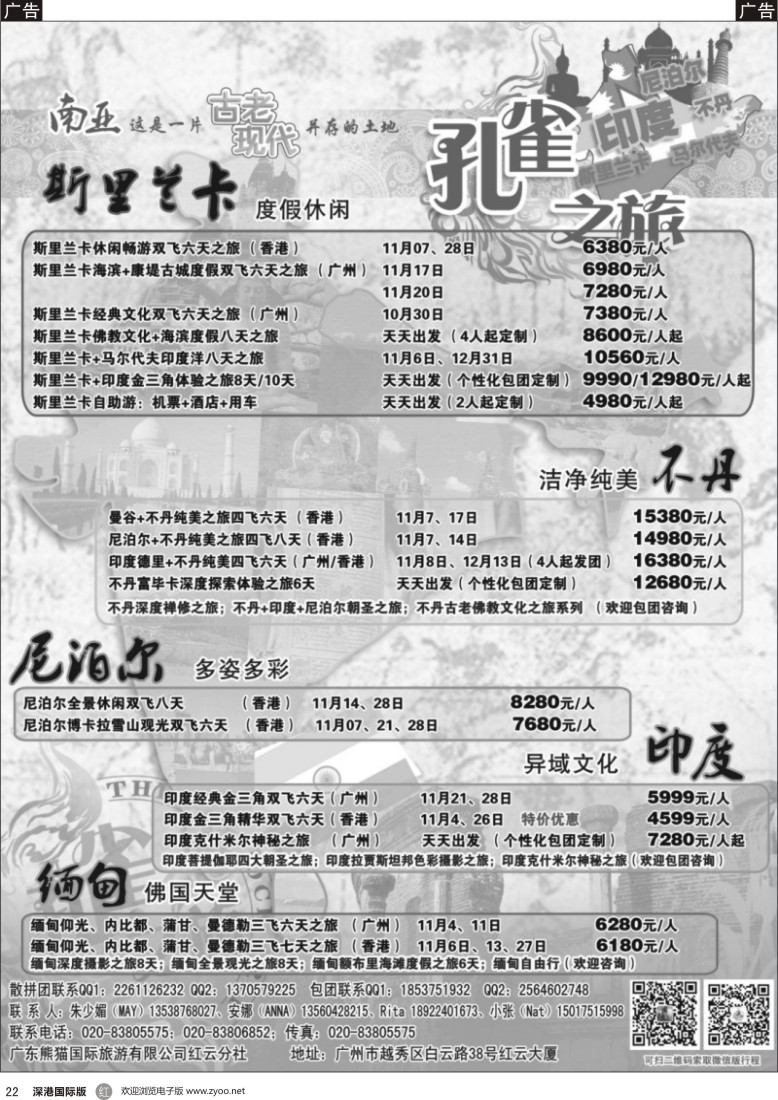 广告
广告
南亚 这是一片 古老 现代 并存的土地
孔雀之旅
尼泊尔
不丹
印度
斯里兰卡 马尔代夫
斯里兰卡 度假休闲
斯里兰卡休闲畅游双飞六天之旅（香港） 11月07、28日 6380元/人
斯里兰卡海滨+康堤古城度假双飞六天之旅（广州） 11月17日 6980元/人
11月20日 7280元/人
斯里兰卡经典文化双飞六天之旅（广州） 10月30日 7380元/人
斯里兰卡佛教文化+海滨度假八天之旅 天天出发（4人起定制） 8600元/人起
斯里兰卡+马尔代夫印度洋八天之旅 11月6日、12月31日 10560元/人
斯里兰卡+印度金三角体验之旅8天/10天 天天出发（个性化包团定制） 9990/12980元/人起
斯里兰卡自助游：机票+酒店+用车 天天出发（2人起定制） 4980元/人起
洁净纯美 不丹
曼谷+不丹纯美之旅四飞六天（香港） 11月7、17日 15380元/人
尼泊尔+不丹纯美之旅四飞八天（香港） 11月7、14日 14980元/人
印度德里+不丹纯美四飞六天（广州/香港） 11月8日、12月13日（4人起发团） 16380元/人
不丹富毕卡深度探索体验之旅6天 天天出发（个性化包团定制） 12680元/人
不丹深度禅修之旅；不丹+印度+尼泊尔朝圣之旅；不丹古老佛教文化之旅系列 （欢迎包团咨询）
尼泊尔 多姿多彩
尼泊尔全景休闲双飞八天 （香港） 11月14、28日 8280元/人
尼泊尔博卡拉雪山观光双飞六天 （香港） 11月07、21、28日 7680元/人
异域文化 印度
印度经典金三角双飞六天（广州） 11月21、28日 5999元/人
印度金三角精华双飞六天（香港） 11月4、26日 特价优惠 4599元/人
印度克什米尔神秘之旅 （广州） 天天出发 （个性化包团定制） 7280元/人起
印度菩提伽耶四大朝圣之旅；印度拉贾斯坦邦色彩摄影之旅；印度克什米尔神秘之旅（欢迎包团咨询）
缅甸 佛国天堂
缅甸仰光、内比都、蒲甘、曼德勒三飞六天之旅 （广州） 11月4、11日 6280元/人
缅甸仰光、内比都、蒲甘、曼德勒三飞七天之旅 （香港） 11月6日、13、27日 6180元/人
缅甸深度摄影之旅8天；缅甸全景观光之旅8天；缅甸额布里海滩度假之旅6天；缅甸自由行（欢迎咨询）
散拼团联系QQ1：2261126232 QQ2：1370579225 包团联系QQ1：1853751932 QQ2：2564602748
联 系 人：朱少媚（MAY）13538768027、安娜（ANNA）13560428215、Rita 18922401673、小张（Nat）15017515998
联系电话：020-83805575；020-83806852；传真：020-83805575
广东熊猫国际旅游有限公司红云分社 地址：广州市越秀区白云路38号红云大厦
可扫二维码索取微信版行程
22 深港国际版 红 欢迎浏览电子版 www.zyoo.net